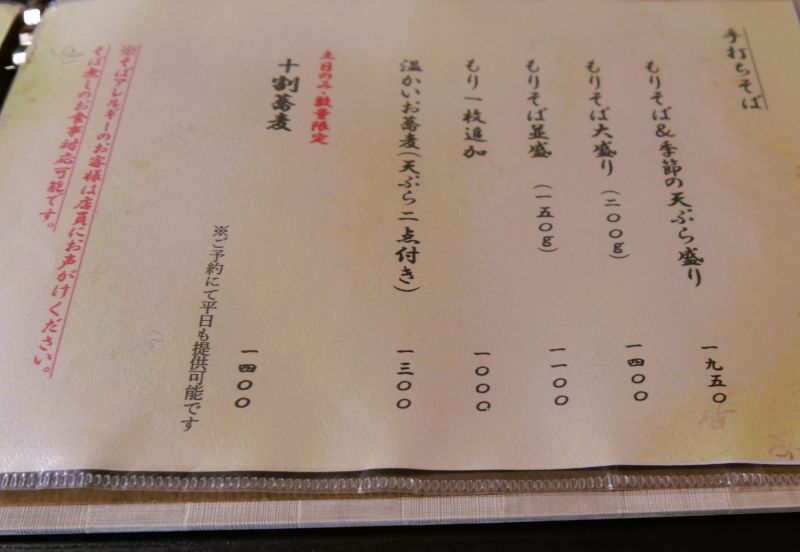 手打ちそば
もりそば&季節の天ぷら盛り 一九五〇
もりそば大盛り(二〇〇g) 一四〇〇
もりそば並盛(一五〇g) 一一〇〇
もり一枚追加 一〇〇〇
温かいお蕎麦(天ぷら二点付き) 一三〇〇
土日のみ・数量限定
十割蕎麦 一四〇〇
※ご予約にて平日も提供可能です
※そばアレルギーのお客様は店員にお声がけください。
そば無しのお食事対応可能です。